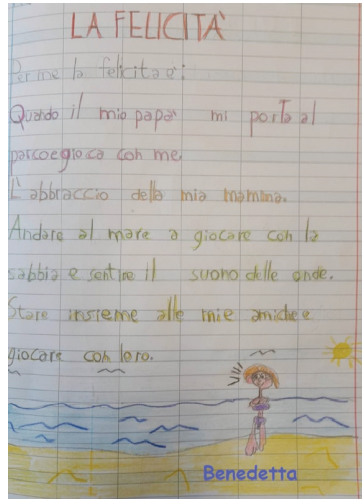 LA FELICITÀ
Per me la felicità è:
Quando il mio papà mi porta al
parco e gioca con me.
L'abbraccio della mia mamma.
Andare al mare a giocare con la
sabbia e sentire il suono delle onde.
Stare insieme alle mie amiche e
giocare con loro.
Benedetta